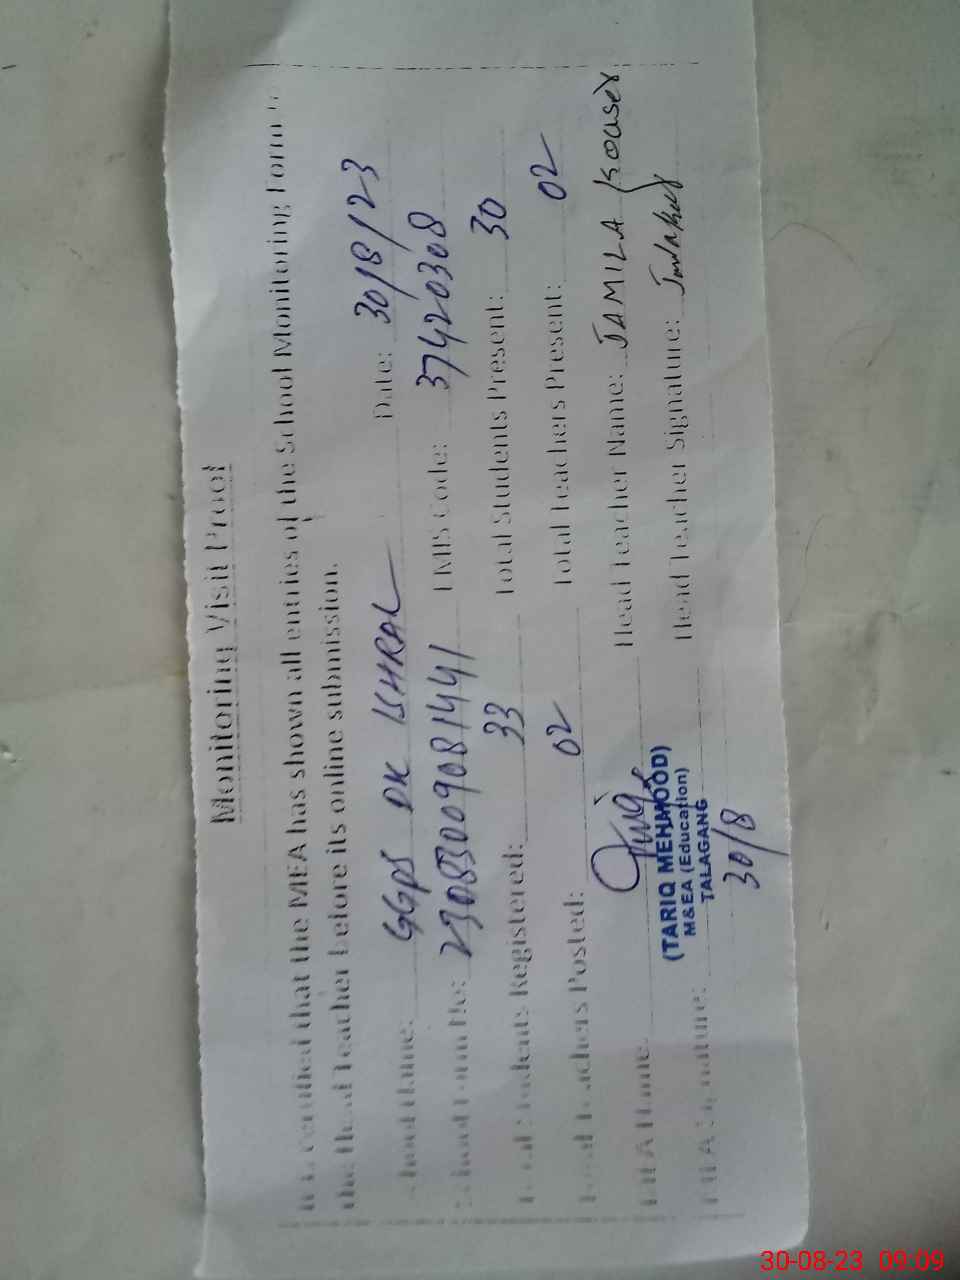 Monitoring Visit Proof
It is certified that the MEA has shown all entries of the School Monitoring Form to
the Head Teacher before its online submission.
School Name: GGPS DK Date: 30/8/23
School Form No: EMIS Code: 37420308
Total Students Registered: 33 Total Students Present: 30
Total Teachers Posted: 02 Total Teachers Present: 02
MEA Name: Head Teacher Name: JAMILA Kouser
MEA Signature: Head Teacher Signature:
(TARIQ MEHMOOD)
M&EA (Education)
TALAGANG
30/8
30-08-23 09:09